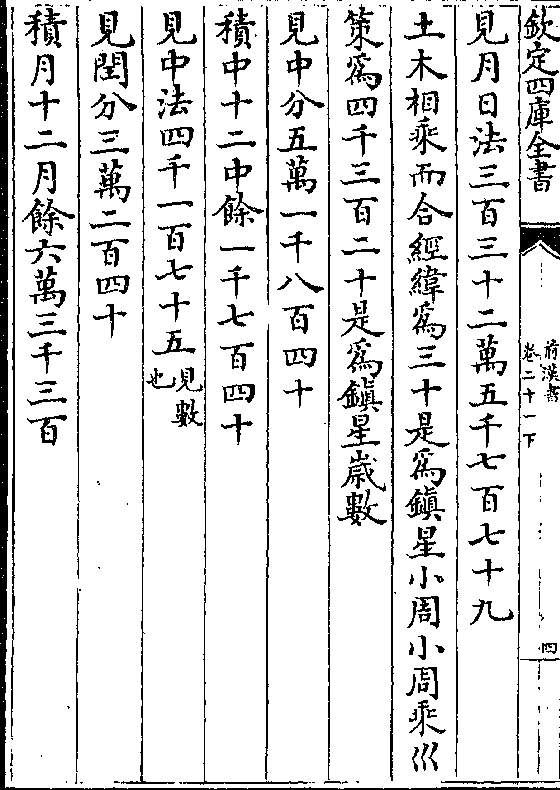 欽定四庫全書
前漢書
卷二十一下
四
見月日法三百三十二萬五千七百七十九
土木相乘而合經緯爲三十是爲鎮星小周小周乘巛
策爲四千三百二十是爲鎮星歲數
見中分五萬一千八百四十
積中十二中餘一千七百四十
見中法四千一百七十五見數也
見閏分三萬二百四十
積月十二月餘六萬三千三百